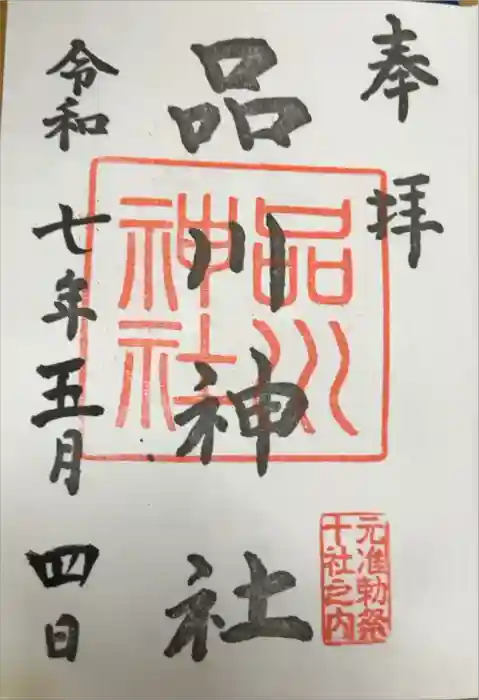 奉拝
品川神社
令和七年五月四日
品川
神社
元准勅祭
十社之内